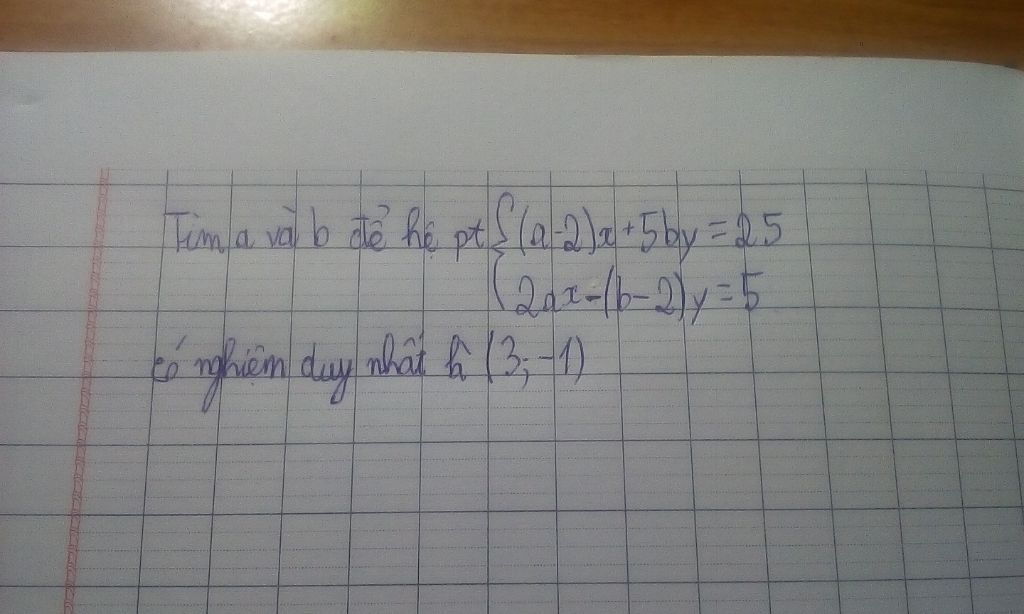 Tìm a và b để hệ pt { (a-2)x+5by=25
2ax-(b-2)y=5
có nghiệm duy nhất là (3;-1)